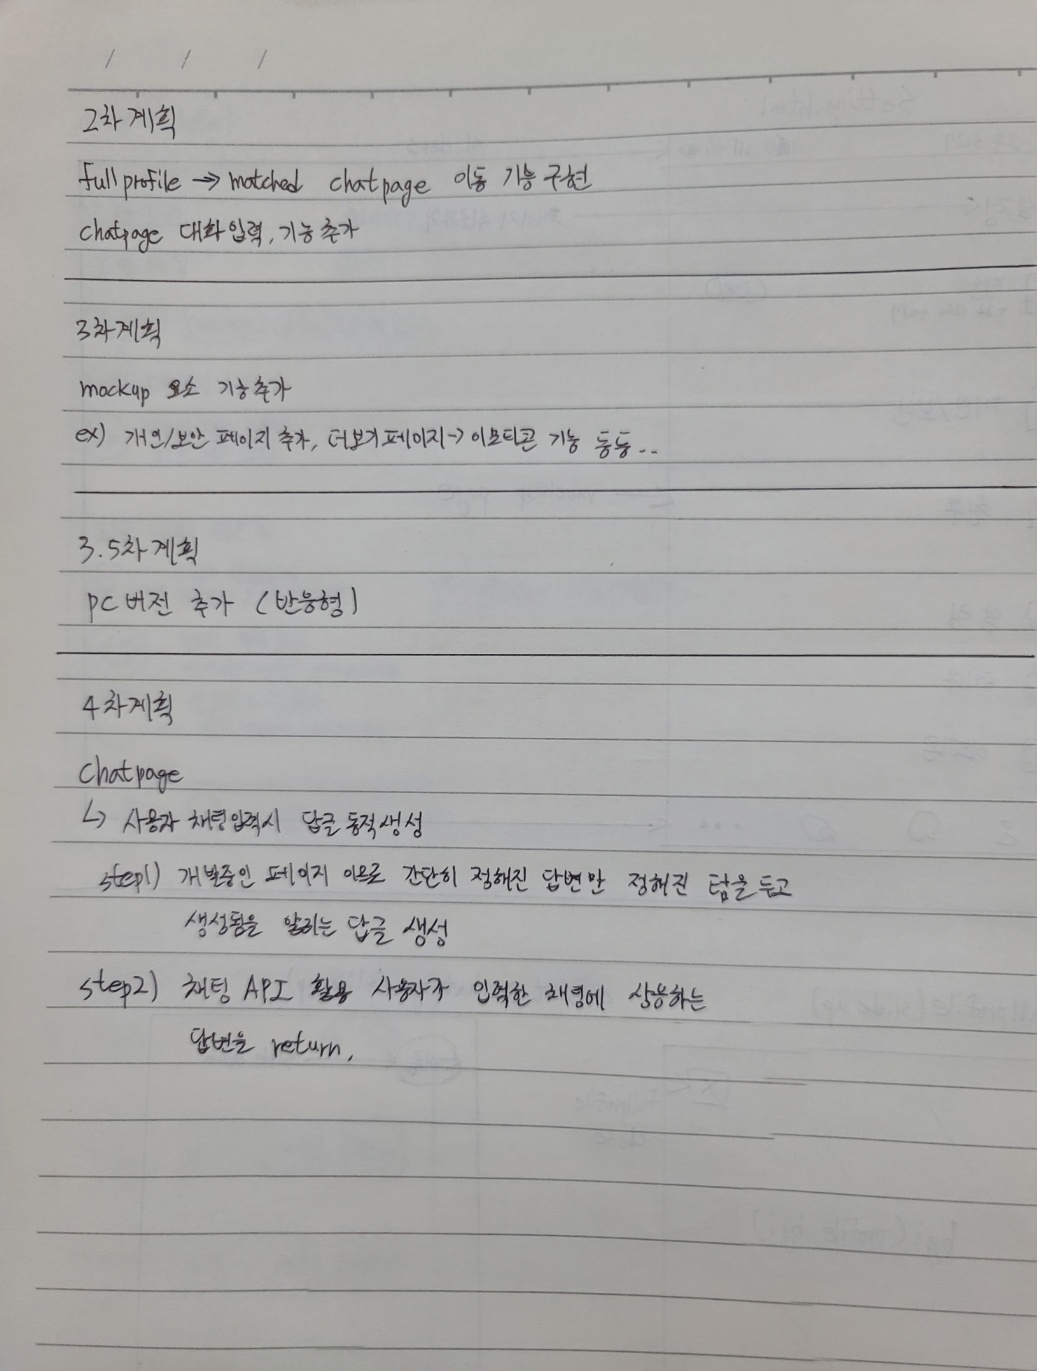 / / /
2차계획
full profile → matched chatpage 이동 기능 구현
chatpage 대화입력, 기능추가
3차계획
mockup 요소 기능추가
ex) 개인/보안 페이지 추가, 더보기페이지→이모티콘 기능 등등..
3.5차계획
pc버전 추가 (반응형)
4차계획
chatpage
↳ 사용자 채팅입력시 답글 동적생성
step1) 개발중인 페이지 이므로 간단히 정해진 답변만 정해진 텀을 두고
생성됨을 알리는 답글 생성
step2) 채팅 API 활용 사용자가 입력한 채팅에 상응하는
답변을 return.